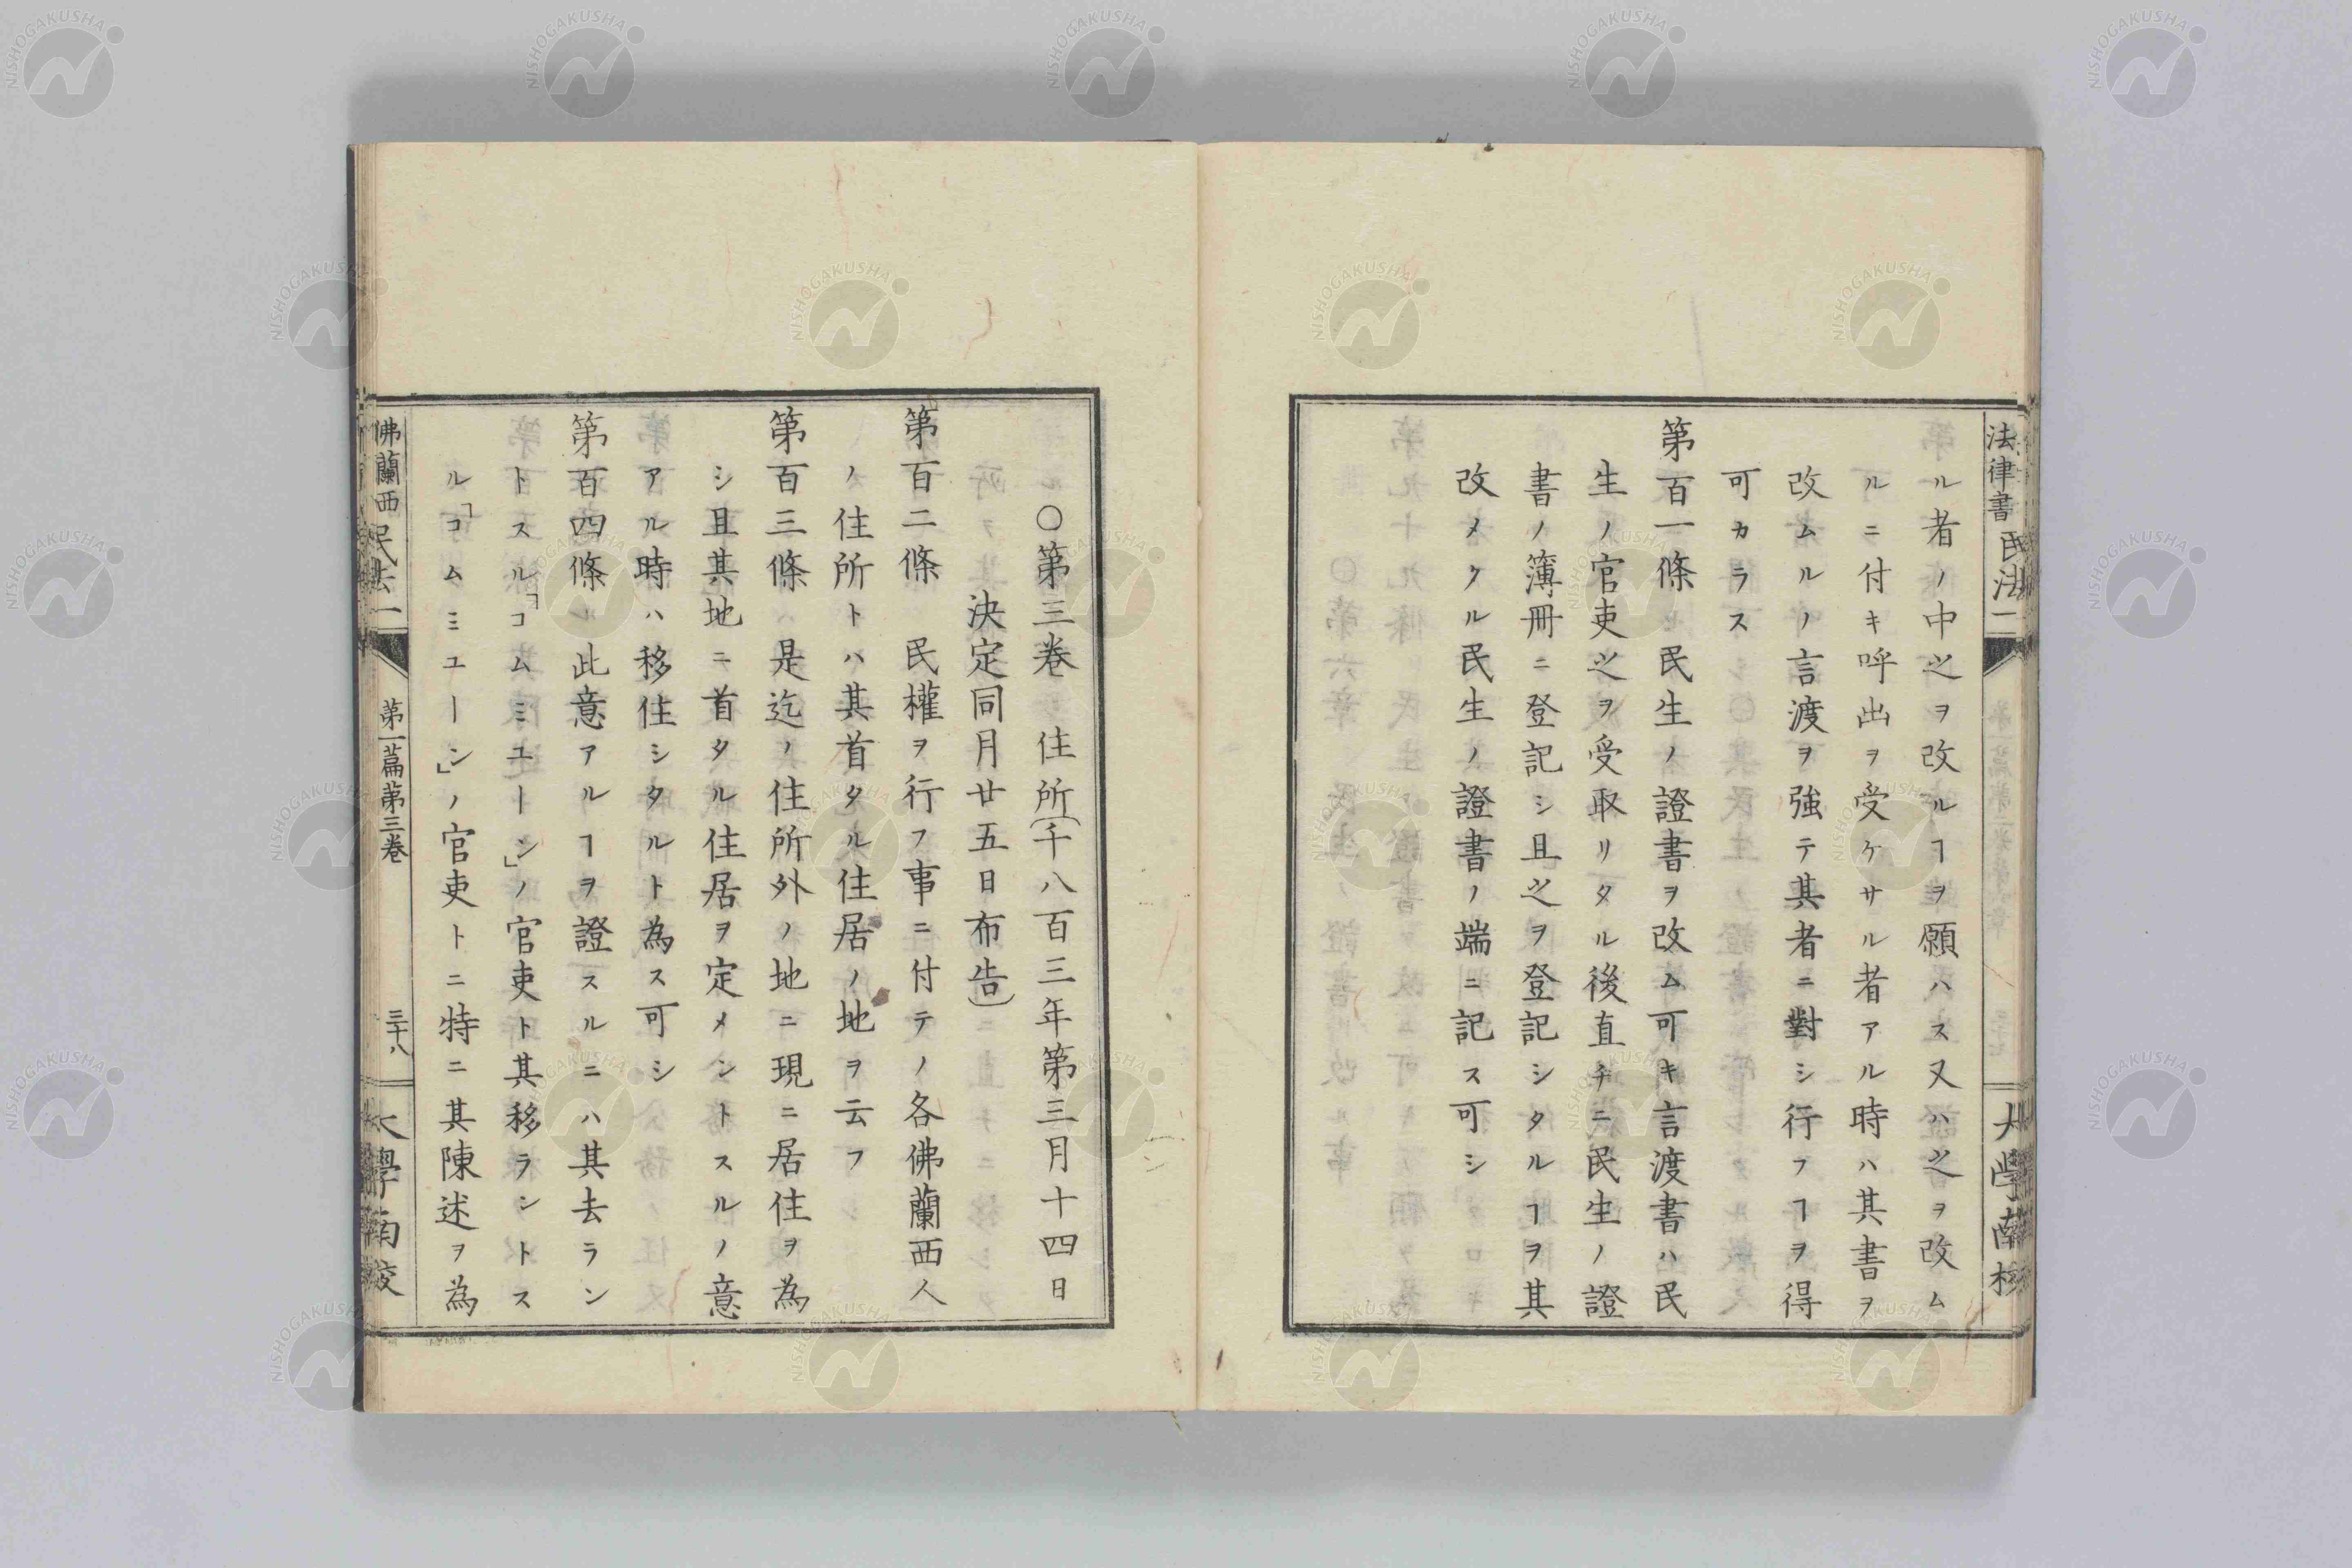 法律書 民法一
大學南校
ル者ノ中之ヲ改ルヿヲ願ハス又ハ之ヲ改ム
ルニ付キ呼出ヲ受ケサル者アル時ハ其書ヲ
改ムルノ言渡ヲ強テ其者ニ對シ行フヿヲ得
可カラス
第百一條 民生ノ證書ヲ改ム可キ言渡書ハ民
生ノ官吏之ヲ受取リタル後直チニ民生ノ證
書ノ簿冊ニ登記シ且之ヲ登記シタルヿヲ其
改メタル民生ノ證書ノ端ニ記ス可シ
〇第三卷 住所(千八百三年第三月十四日
決定同月廿五日布告)
第百二條 民權ヲ行フ事ニ付テノ各佛蘭西人
ノ住所トハ其首タル住居ノ地ヲ云フ
第百三條 是迄ノ住所外ノ地ニ現ニ居住ヲ為
シ且其地ニ首タル住居ヲ定メントスルノ意
アル時ハ移住シタルト為ス可シ
第百四條 此意アルヿヲ證スルニハ其去ラン
トスル「コムミユーン」ノ官吏ト其移ラントス
ル「コムミユーン」ノ官吏トニ特ニ其陳述ヲ為
佛蘭西民法一
第一篇第三卷
三十八
大學南校
NISHOGAKUSHA